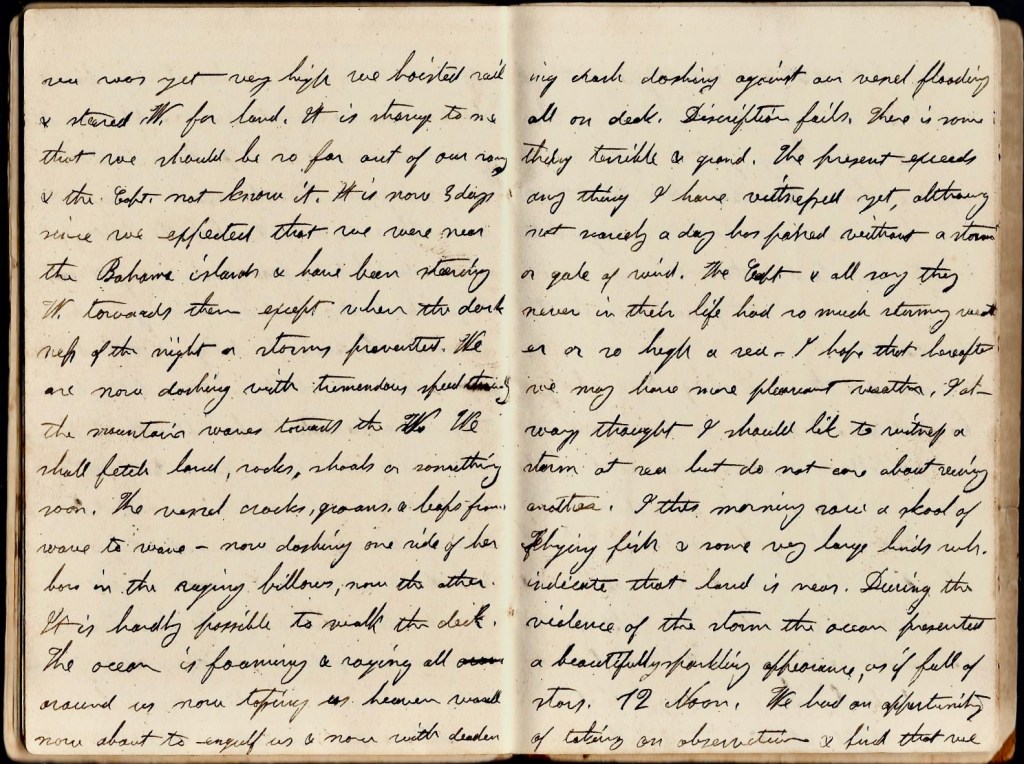 sea was yet very high we hoisted sail
& steered W. for land. It is strange to me
that we should be so far out of our way
& the Capt. not know it. It is now 3 days
since we expected that we were near
the Bahama islands & have been steering
W. towards them except when the dark
ness of the night or storms prevented. We
are now dashing with tremendous speed through
the mountain waves towards the W. We
shall fetch land, rocks, shoals or something
soon. The vessel cracks, groans, & leaps from
wave to wave – now dashing one side of her
bow in the raging billows, now the other.
It is hardly possible to walk the deck.
The ocean is foaming & raging all
around us now toping us heaven ward
now about to engulf us & now with deafen
ing crash dashing against our vessel flooding
all on deck. Discription fails. There is some
thing terrible & grand. The present exceeds
any thing I have witnessed yet, althoug
not scarcely a day has passed without a storm
or gale of wind. The Capt & all say they
never in their life had so much stormy weath
er or so high a sea – I hope that hereafter
we may have more pleasant weather. I al–
ways thought I should like to witness a
storm at sea but do not care about seeing
another. I this morning saw a skool of
Flying fish & some very large birds wh.
indicate that land is near. During the
violence of the storm the ocean presented
a beautifully sparkling appearance, as if full of
stars. 12 Noon. We had an opportunity
of taking an observation & find that we